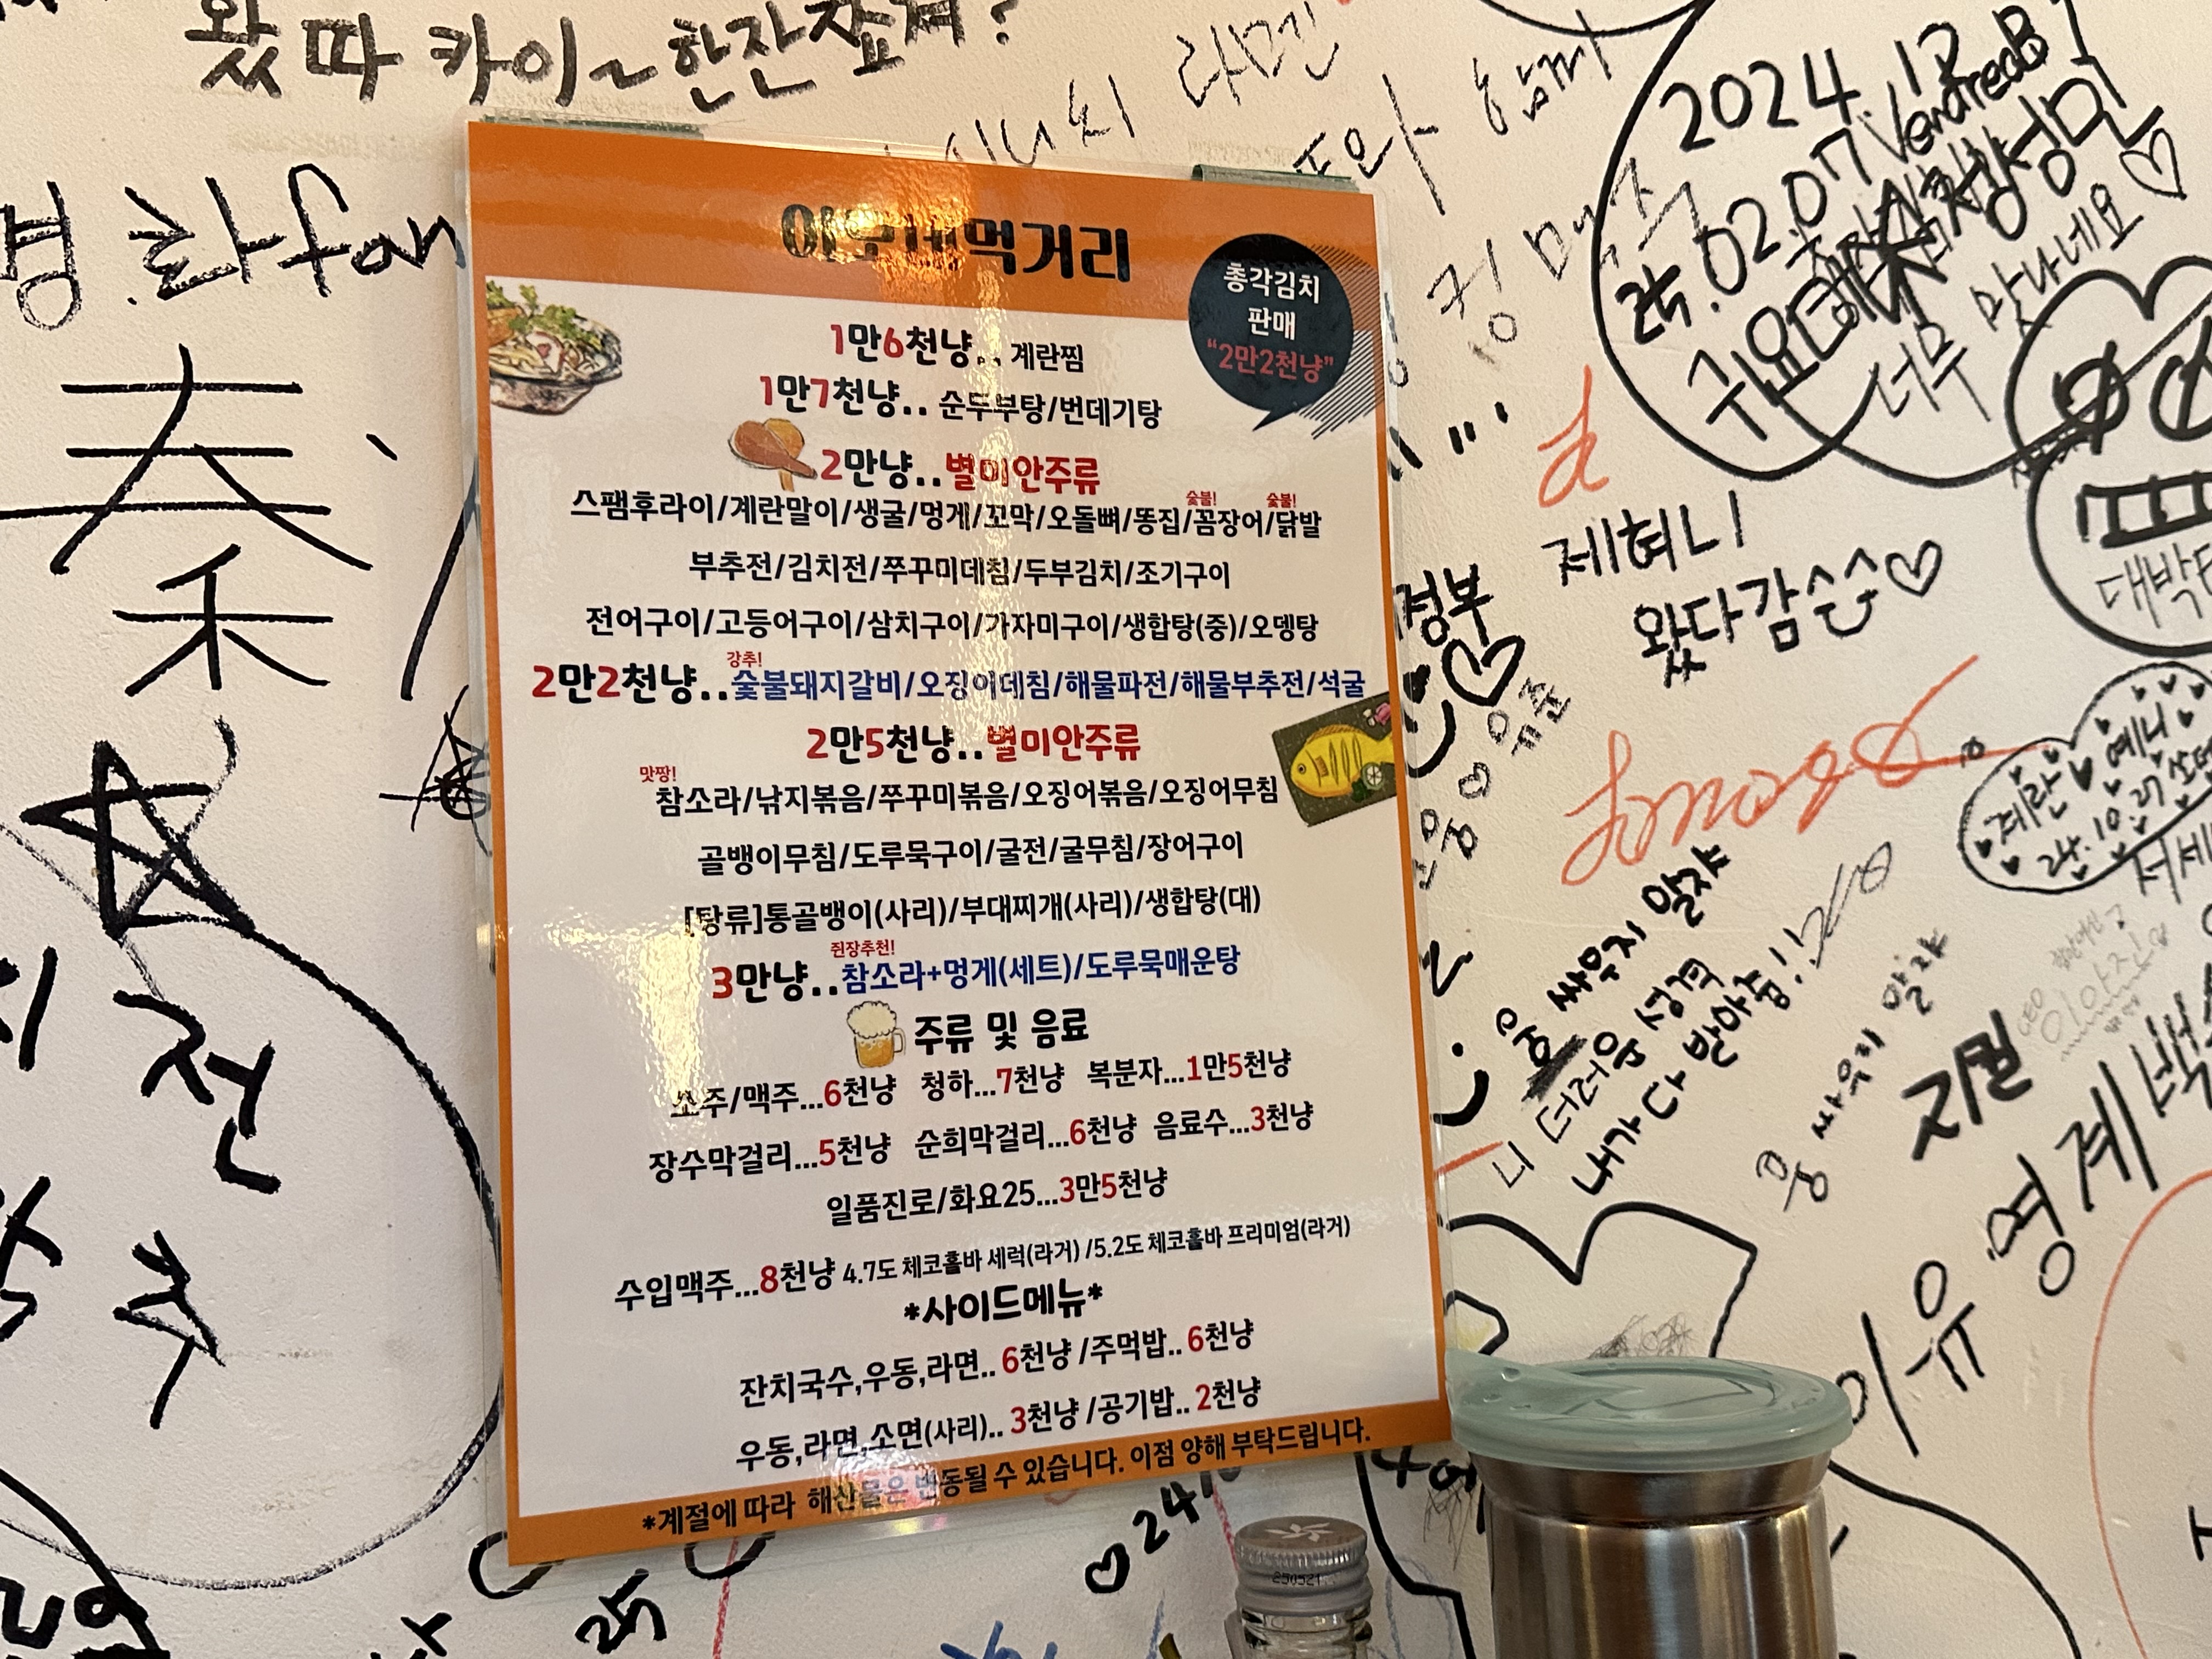 왔따 카이~ 한잔 쬬껴?
라멘
와 함께
2024.12
25.02.07
너무 맛나네요♡
먹거리
총각김치
판매
"2만2천냥"
1만6천냥.. 계란찜
1만7천냥.. 순두부탕/번데기탕
2만냥..별미안주류
숯불! 숯불!
스팸후라이/계란말이/생굴/멍게/꼬막/오돌뼈/똥집/꼼장어/닭발
부추전/김치전/쭈꾸미데침/두부김치/조기구이
전어구이/고등어구이/삼치구이/가자미구이/생합탕(중)/오뎅탕
강추!
2만2천냥..숯불돼지갈비/오징어데침/해물파전/해물부추전/석굴
2만5천냥..별미안주류
맛짱!
참소라/낚지볶음/쭈꾸미볶음/오징어볶음/오징어무침
골뱅이무침/도루묵구이/굴전/굴무침/장어구이
[탕류]통골뱅이(사리)/부대찌개(사리)/생합탕(대)
쥔장추천!
3만냥..참소라+멍게(세트)/도루묵매운탕
주류 및 음료
소주/맥주...6천냥 청하...7천냥 복분자...1만5천냥
장수막걸리...5천냥 순희막걸리...6천냥 음료수...3천냥
일품진로/화요25...3만5천냥
수입맥주...8천냥 4.7도 체코홀바 세럭(라거) /5.2도 체코홀바 프리미엄(라거)
*사이드메뉴*
잔치국수,우동,라면.. 6천냥 /주먹밥.. 6천냥
우동,라면,소면(사리).. 3천냥 /공기밥.. 2천냥
*계절에 따라 해산물은 변동될 수 있습니다. 이점 양해 부탁드립니다.
제혀니
왔다감ㅅㄱ♡
대박
계란♡예니
24.10.27
싸우지 말자
내가 다 받아줌!!
싸우지 말자
지퀸
이유 영계백
전
25
♡24
250521